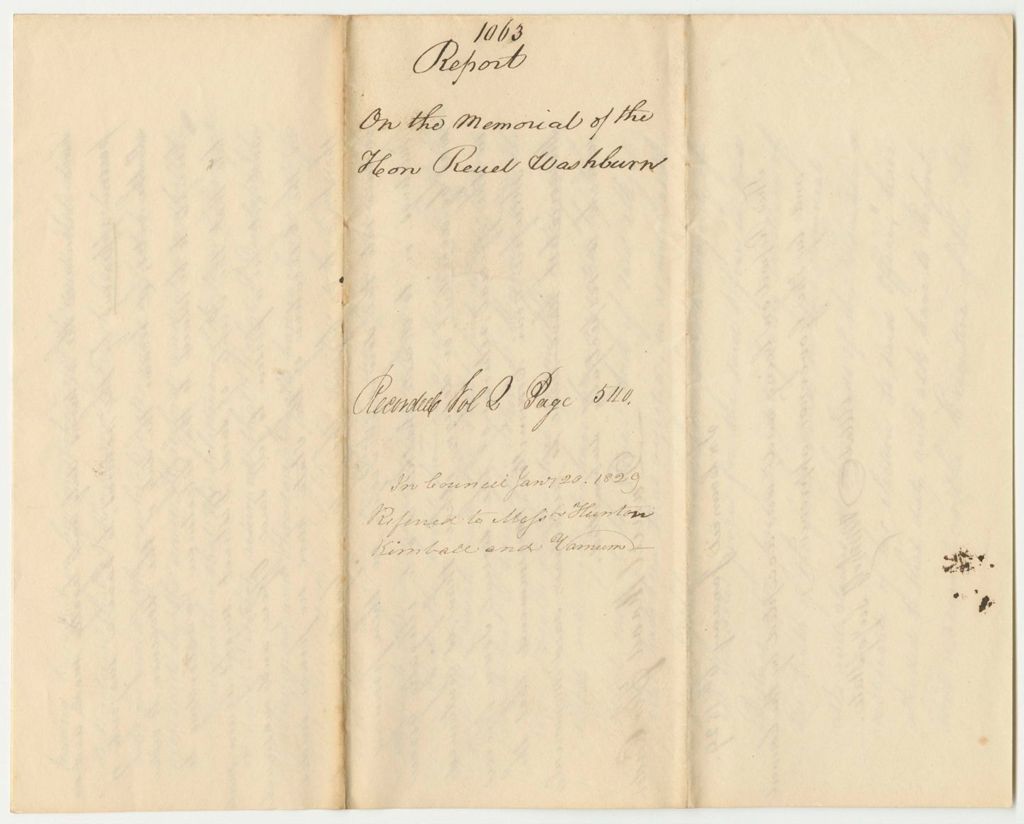 1063
Report
On the Memorial of the
Hon Reuel Washburn
Recorded Vol 2 Page 540.
In Council Jany 20. 1829
Referred to Messrs Hunton
Kimball and Varnum